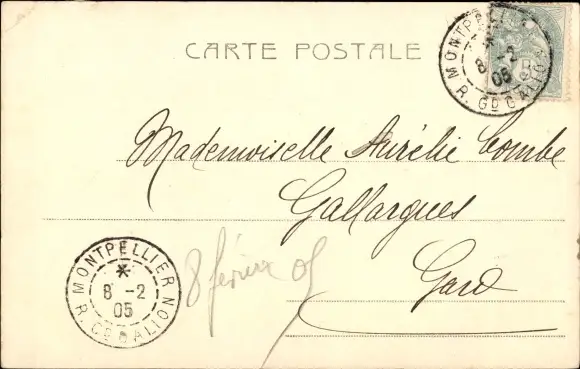 CARTE POSTALE
MONTPELLIER
8 -2
05
R. GD GALION
Mademoiselle Aurélie Combe
Gallargues
Gard
8 février 05
MONTPELLIER
8 -2
05
R. GD GALION